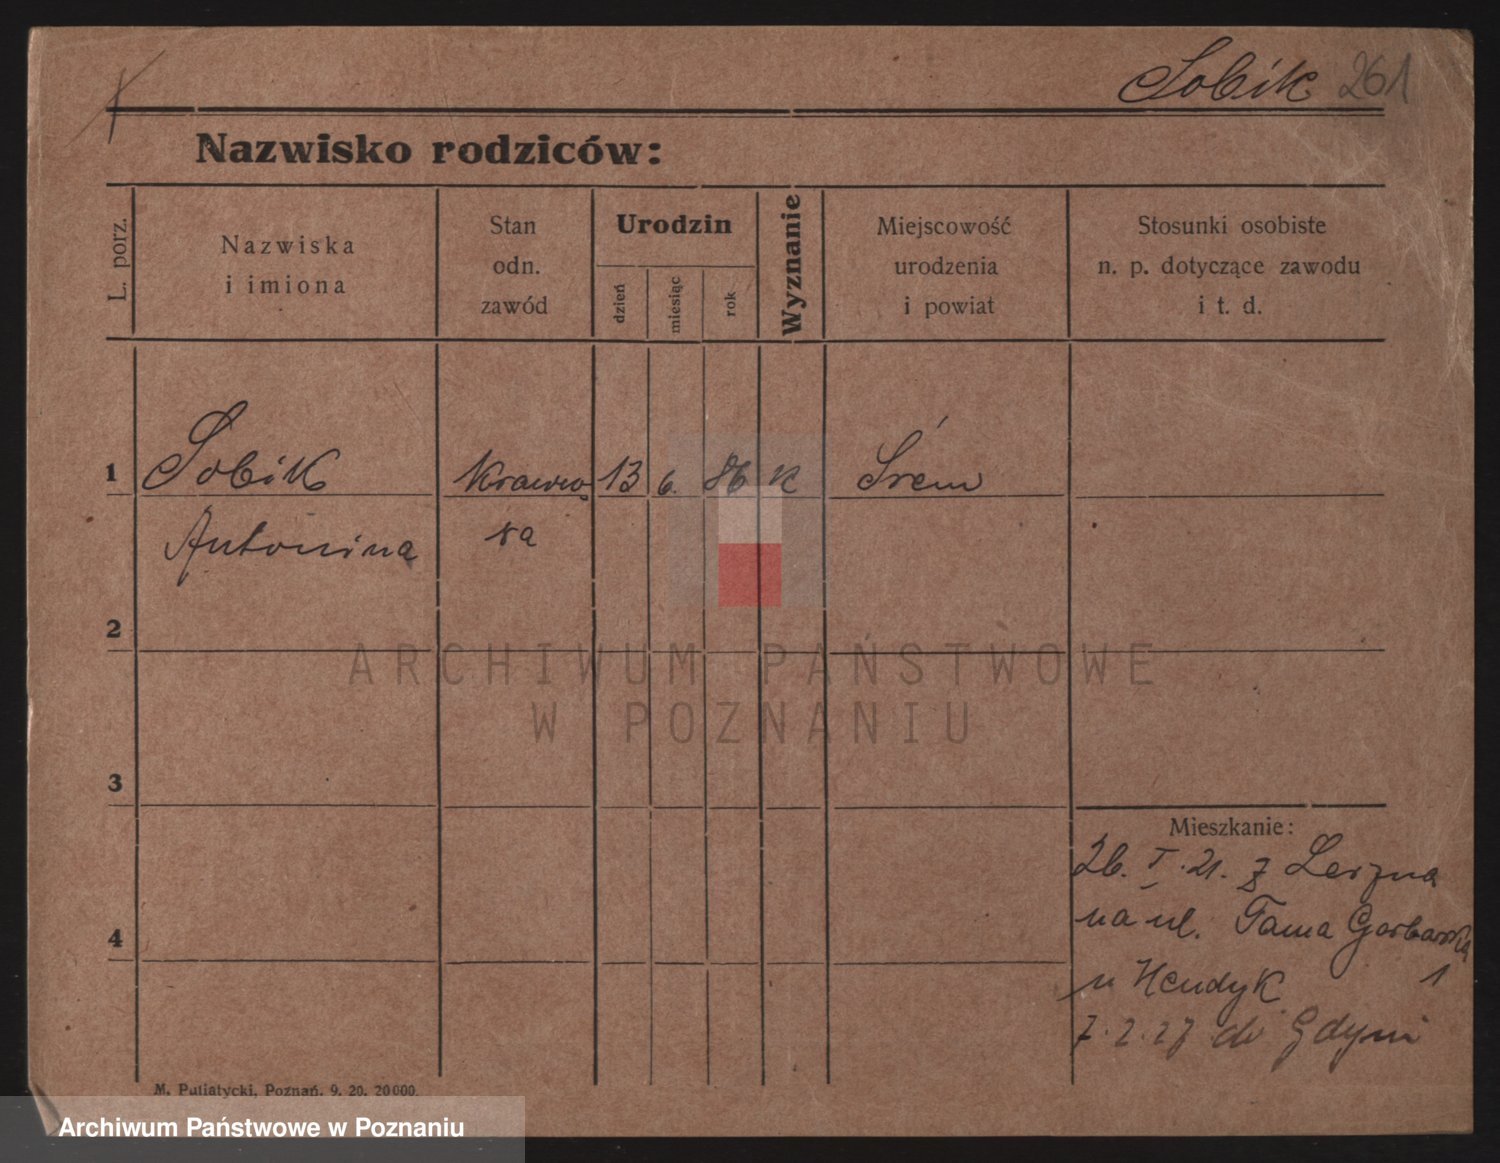 Sobik 261
Nazwisko rodziców:
L. porz.
Nazwiska
i imiona
Stan
odn.
zawód
Urodzin
dzień
miesiąc
rok
Wyznanie
Miejscowość
urodzenia
i powiat
Stosunki osobiste
n. p. dotyczące zawodu
i t. d.
1 Sobik Krawco 13 6. 86 K Śrem
Antonina
wa
2
ARCHIWUM PAŃSTWOWE
W POZNANIU
3
Mieszkanie:
26. I. 21. z Leszna
na ul. Tama Garbarska
4
u Hendyk 1
7. 2. 27 do Gdyni
M. Putiatycki, Poznań. 9. 20. 20000.
Archiwum Państwowe w Poznaniu